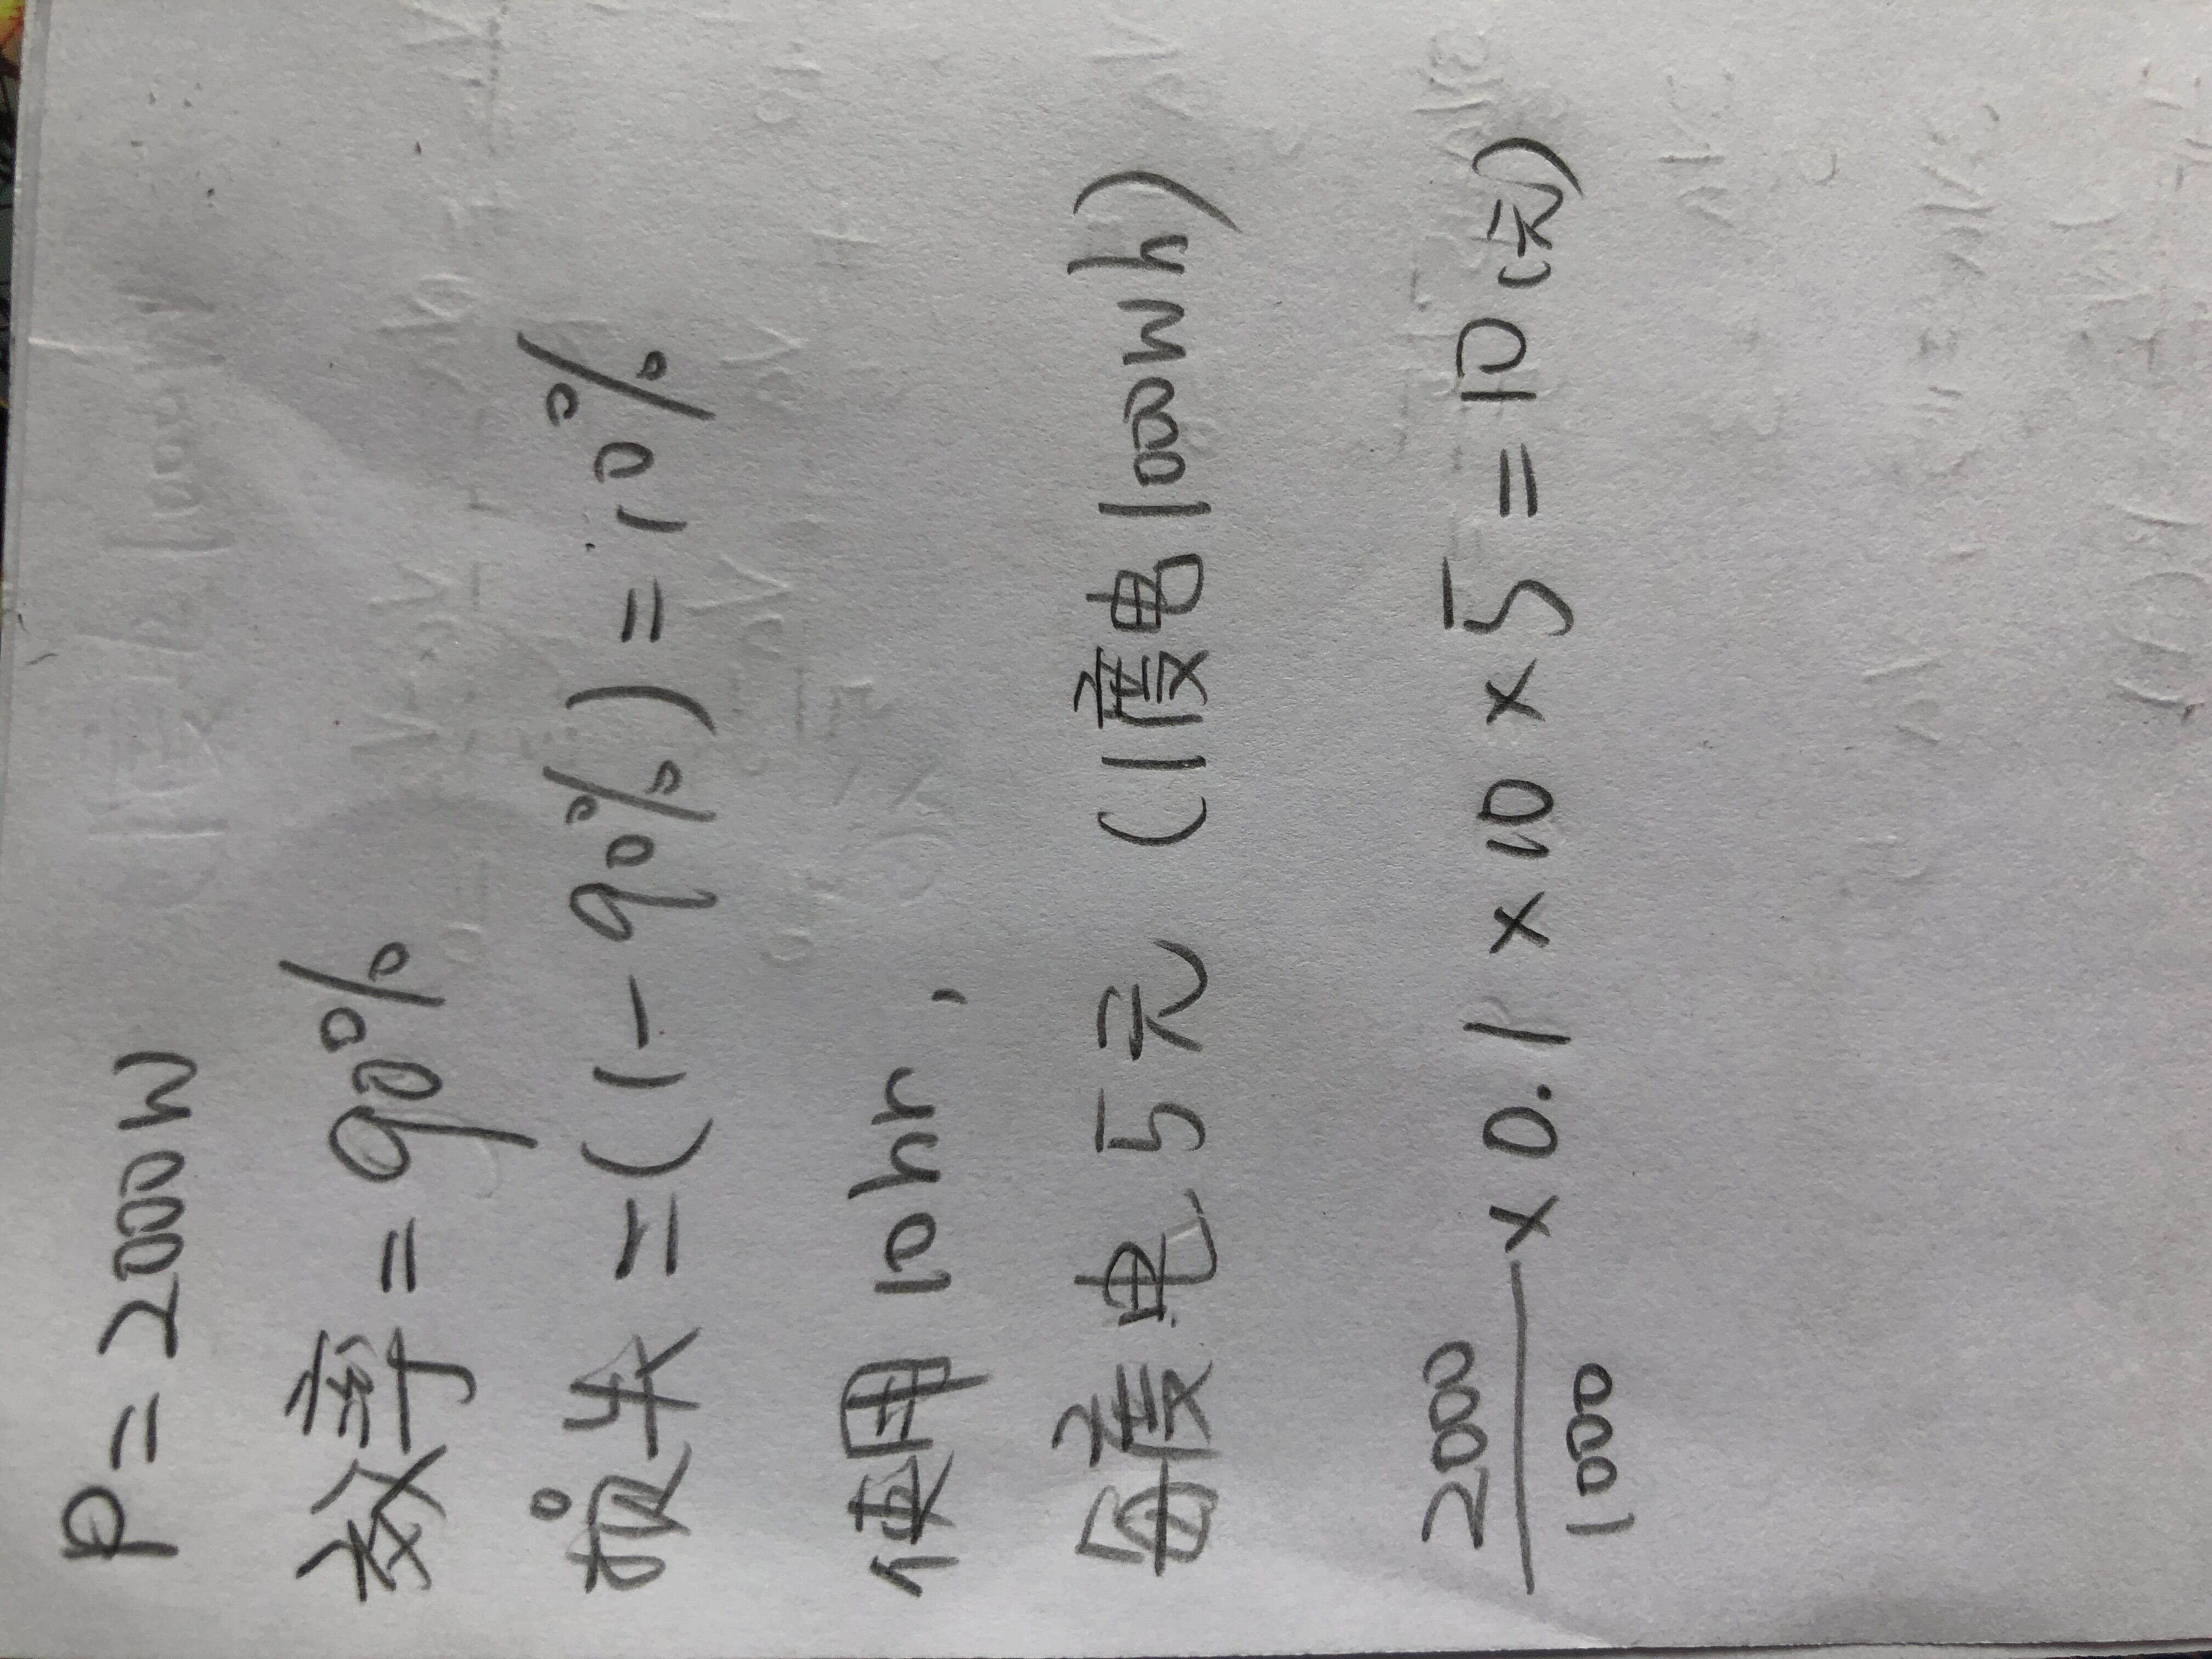 P = 2000W
效率 = 90%
損失 = (1 - 90%) = 10%
使用 10hr,
每度电 5元 (1度电1000Wh)
2000/1000 × 0.1 × 10 × 5 = 10 (元)